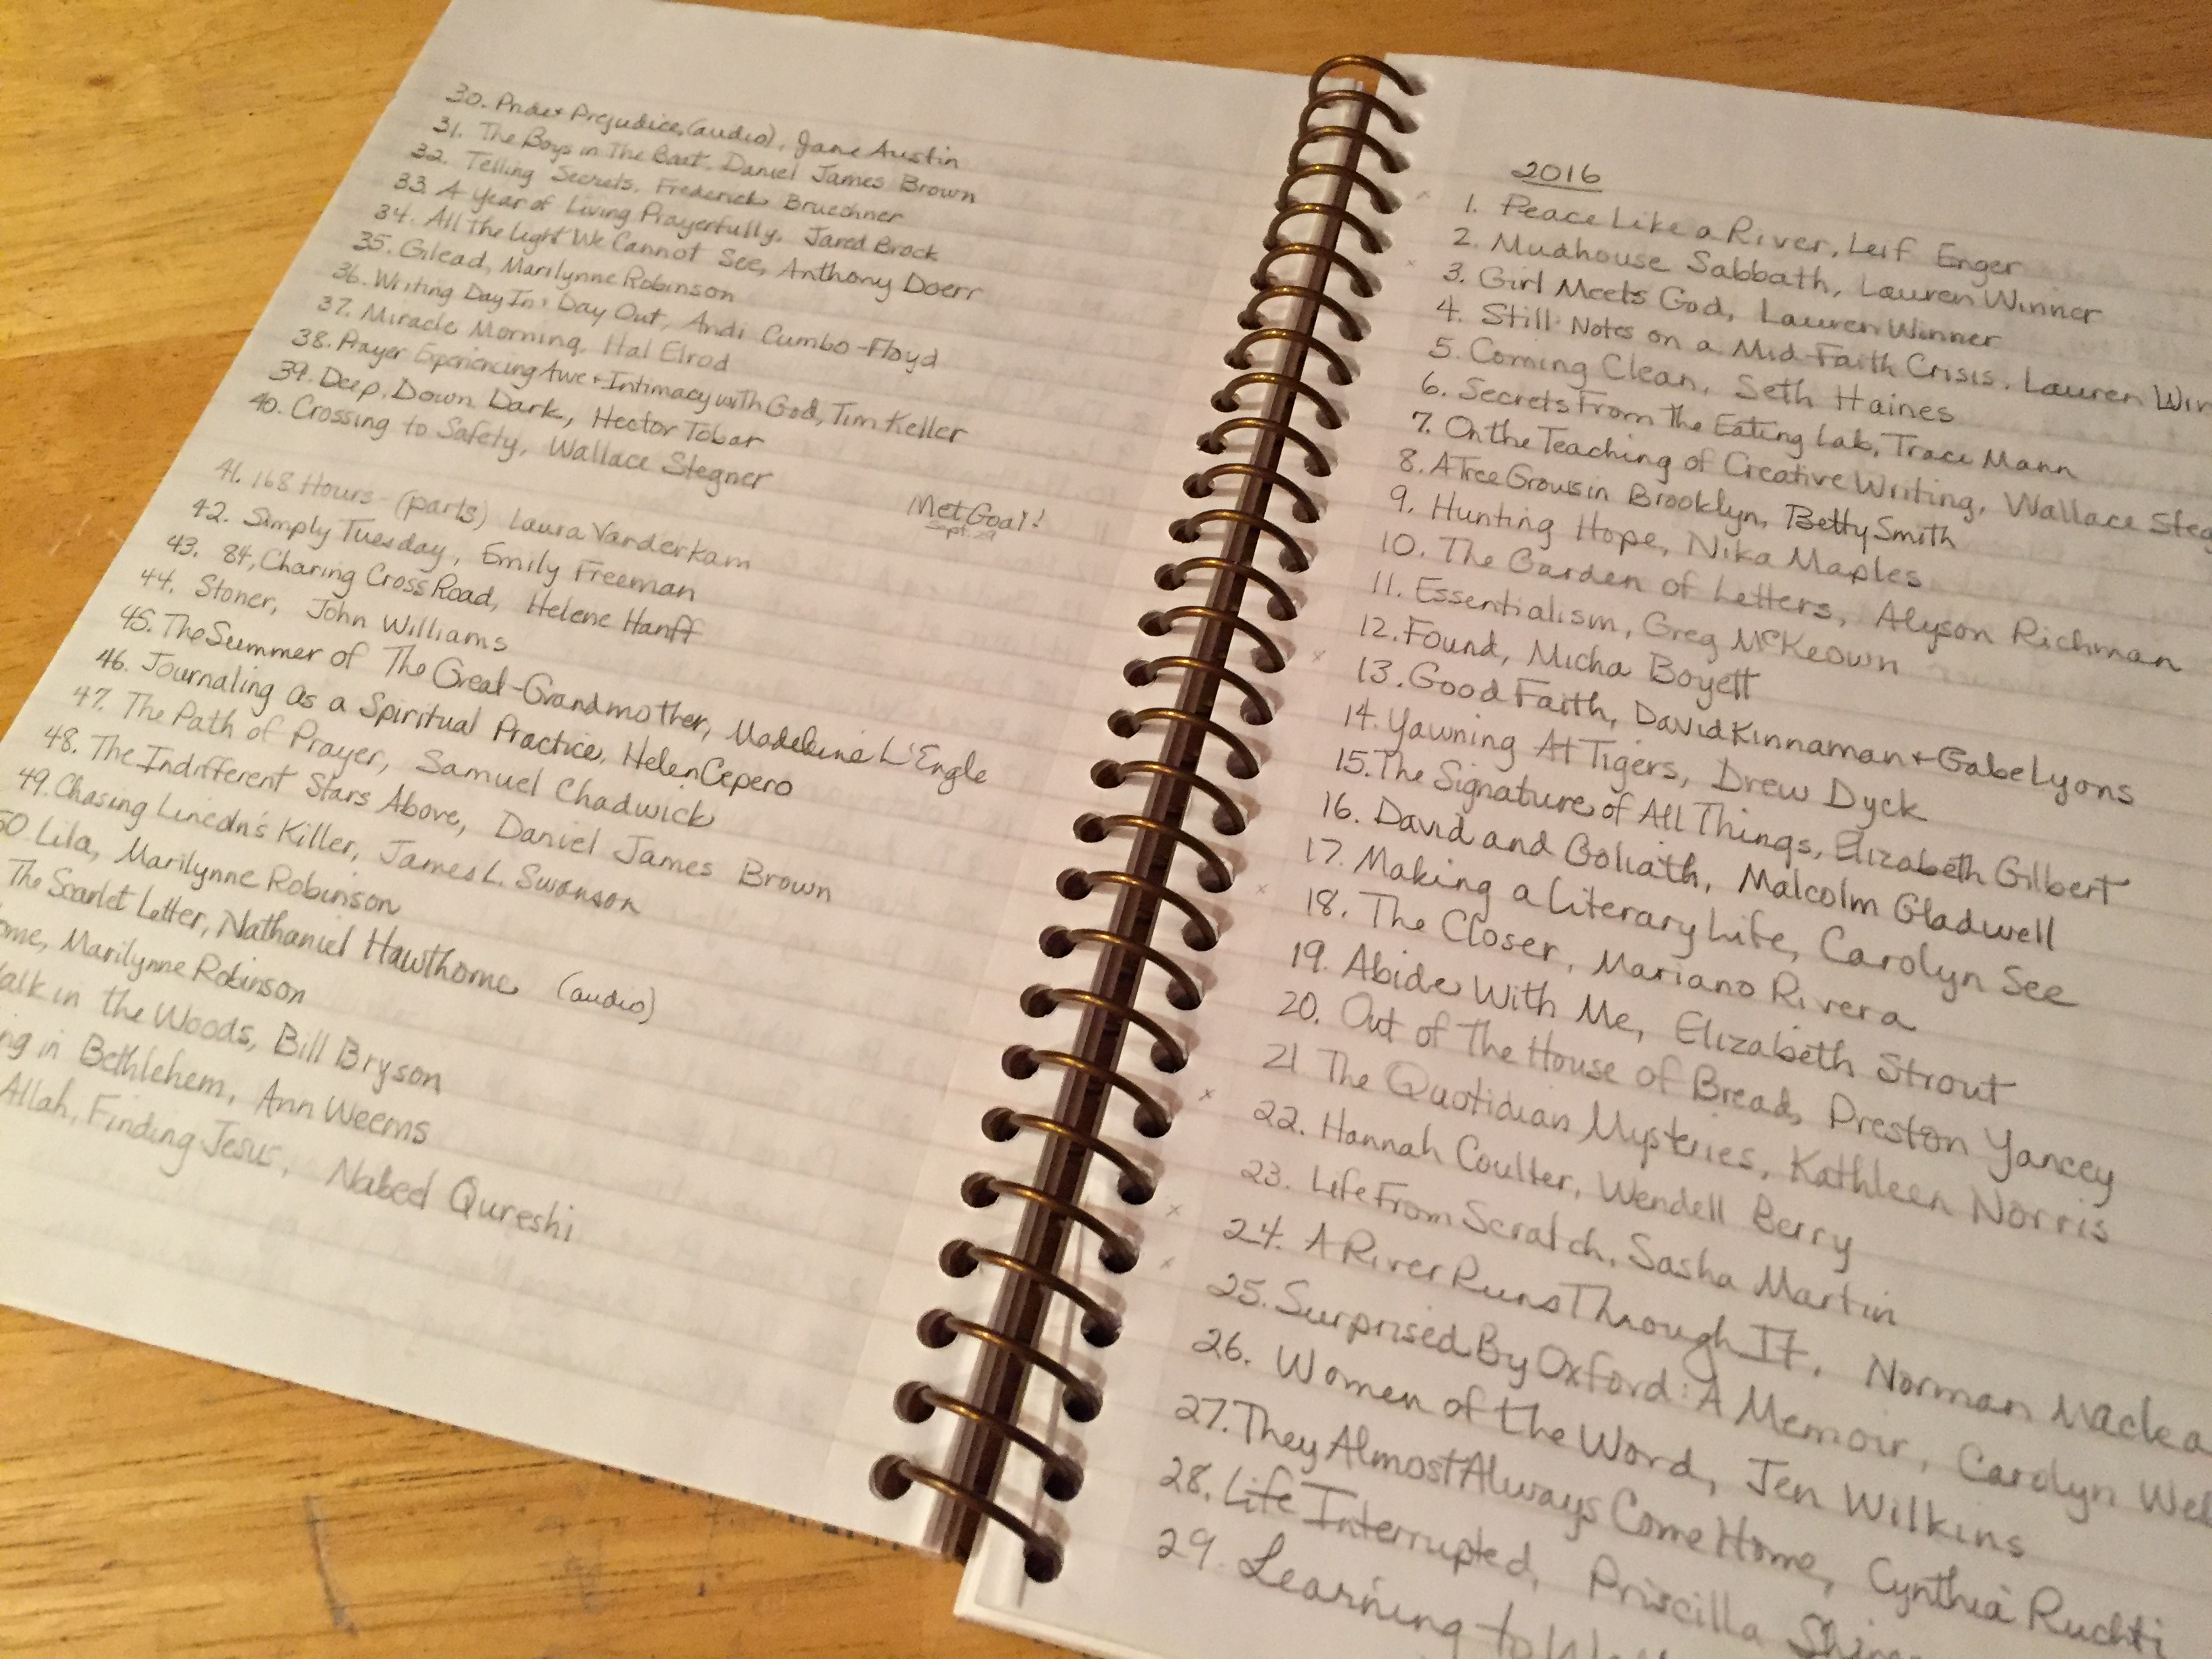 30. Pride + Prejudice, (audio), Jane Austin
31. The Boys in The Boat, Daniel James Brown
32. Telling Secrets, Frederick Bruechner
33. A Year of Living Prayerfully, Jared Brock
34. All the Light We Cannot See, Anthony Doerr
35. Gilead, Marilynne Robinson
36. Writing Day In + Day Out, Andi Cumbo-Floyd
37. Miracle Morning, Hal Elrod
38. Prayer Experiencing Awe + Intimacy with God, Tim Keller
39. Deep, Down Dark, Hector Tobar
40. Crossing to Safety, Wallace Stegner
Met Goal!
Sept. 29
41. 168 Hours - (parts) Laura Vanderkam
42. Simply Tuesday, Emily Freeman
43. 84, Charing Cross Road, Helene Hanff
44. Stoner, John Williams
45. The Summer of The Great-Grandmother, Madeleine L'Engle
46. Journaling as a Spiritual Practice, Helen Cepero
47. The Path of Prayer, Samuel Chadwick
48. The Indifferent Stars Above, Daniel James Brown
49. Chasing Lincoln's Killer, James L. Swanson
50 Lila, Marilynne Robinson
The Scarlet Letter, Nathaniel Hawthorne (audio)
ome, Marilynne Robinson
alk in the Woods, Bill Bryson
ng in Bethlehem, Ann Weems
Allah, Finding Jesus, Nabeel Qureshi
2016
1. Peace Like a River, Leif Enger
2. Mudhouse Sabbath, Lauren Winner
3. Girl Meets God, Lauren Winner
4. Still: Notes on a Mid-Faith Crisis, Lauren Win
5. Coming Clean, Seth Haines
6. Secrets From The Eating Lab, Traci Mann
7. On the Teaching of Creative Writing, Wallace Steg
8. A Tree Grows in Brooklyn, Betty Smith
9. Hunting Hope, Nika Maples
10. The Garden of Letters, Alyson Richman
11. Essentialism, Greg McKeown
12. Found, Micha Boyett
13. Good Faith, David Kinnaman + Gabe Lyons
14. Yawning At Tigers, Drew Dyck
15. The Signature of All Things, Elizabeth Gilbert
16. David and Goliath, Malcolm Gladwell
17. Making a Literary Life, Carolyn See
18. The Closer, Mariano Rivera
19. Abide With Me, Elizabeth Strout
20. Out of The House of Bread, Preston Yancey
21 The Quotidian Mysteries, Kathleen Norris
22. Hannah Coulter, Wendell Berry
23. Life From Scratch, Sasha Martin
24. A River Runs Through It, Norman Maclea
25. Surprised By Oxford: A Memoir, Carolyn We
26. Women of the Word, Jen Wilkins
27. They Almost Always Come Home, Cynthia Ruchti
28. Life Interrupted, Priscilla Shir
29. Learning to Wal